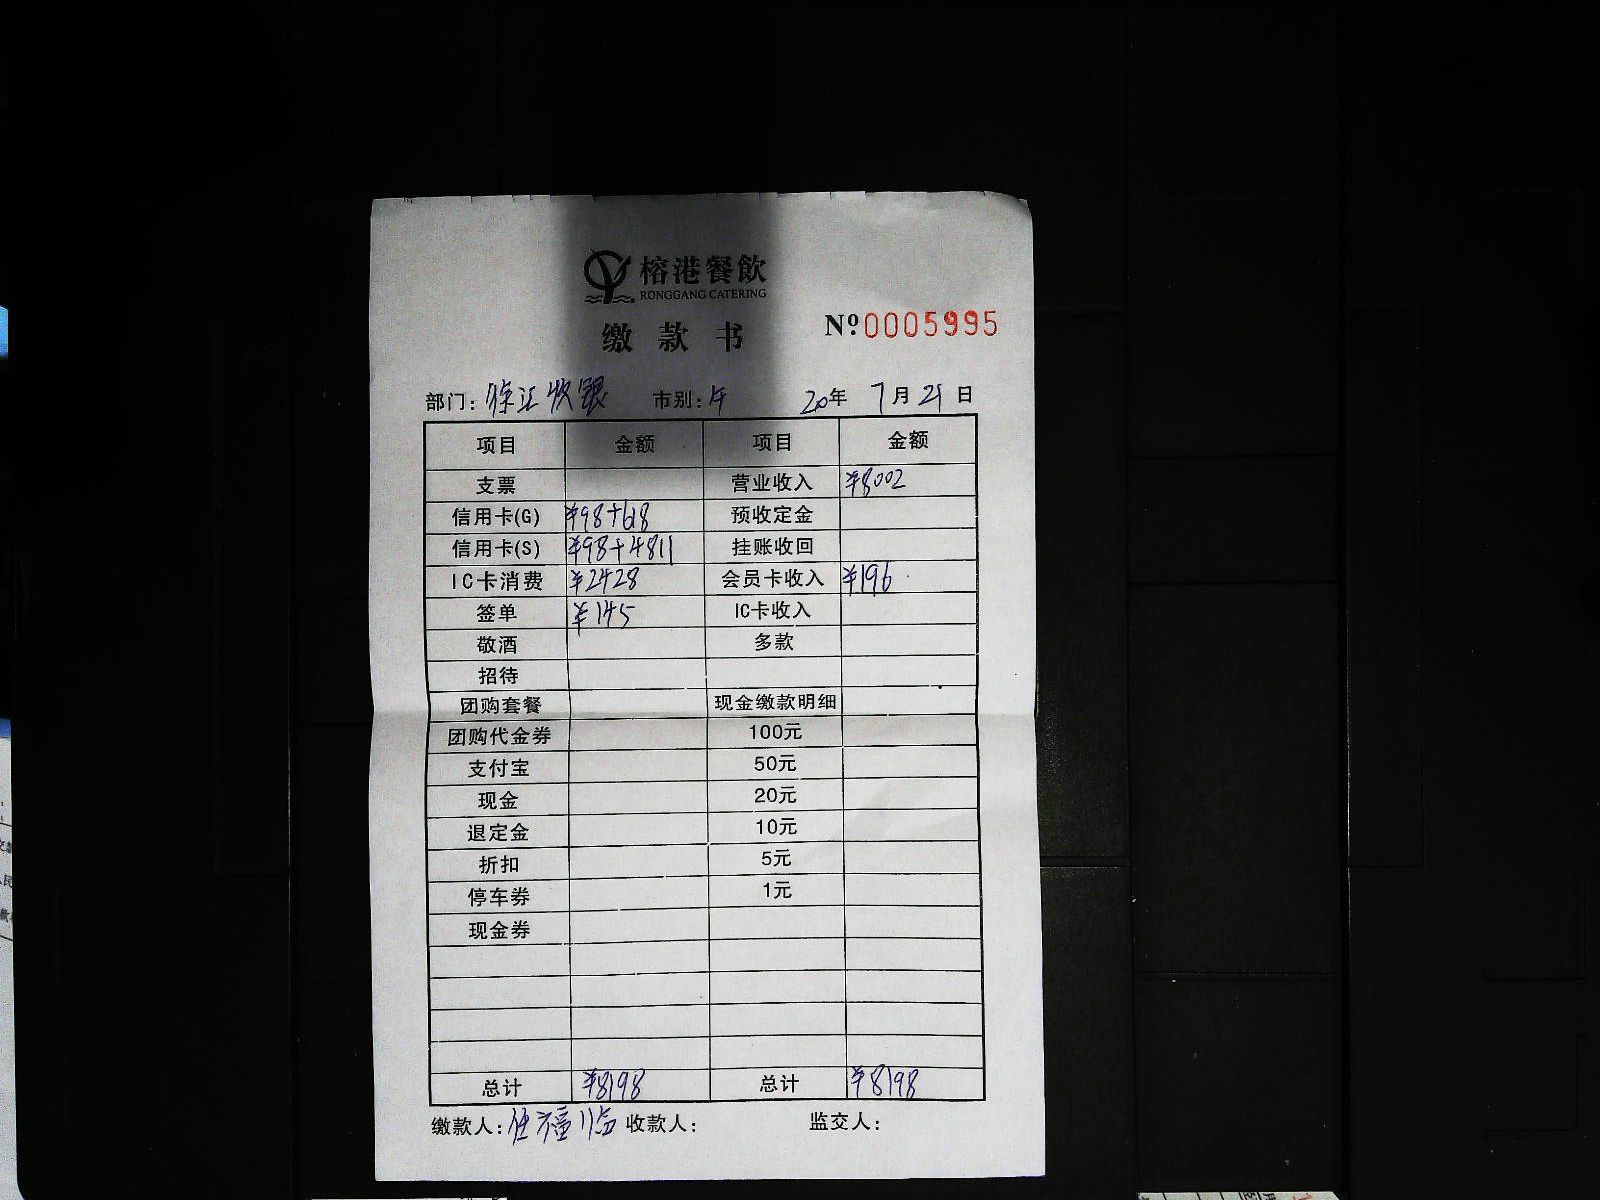 榕港餐飲
RONGGANG CATERING
缴款书
№0005995
部门: 徐汇收银 市别: 午 20年 7月 21日
项目 金额 项目 金额
支票 营业收入 ¥8002
信用卡(G) ¥98+618 预收定金
信用卡(S) ¥98+4811 挂账收回
IC卡消费 ¥2428 会员卡收入 ¥196
签单 ¥145 IC卡收入
敬酒 多款
招待
团购套餐 现金缴款明细
团购代金券 100元
支付宝 50元
现金 20元
退定金 10元
折扣 5元
停车券 1元
现金券
总计 ¥8198 总计 ¥8198
缴款人: 收款人: 监交人: